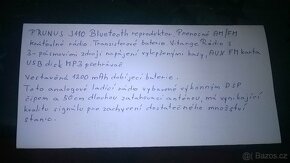 PRUNUS J110 Bluetooth reproduktor Přenosné AM/FM
Krátkovlné rádio Tranzistorové baterie Vintage Rádio s
3-pásmovými zdroji napájení vylepšenými basy, AUX FM karta
USB disk MP3 přehrávač
Vestavěná 1200 mAh dobíjecí baterie.
Toto analogové ladící rádio vybavené výkonným DSP
čipem a 50cm dlouhou zatahovací anténou má vynikající
kvalitu signálu pro zachycení dostatečného množství
stanic.
bazos.cz